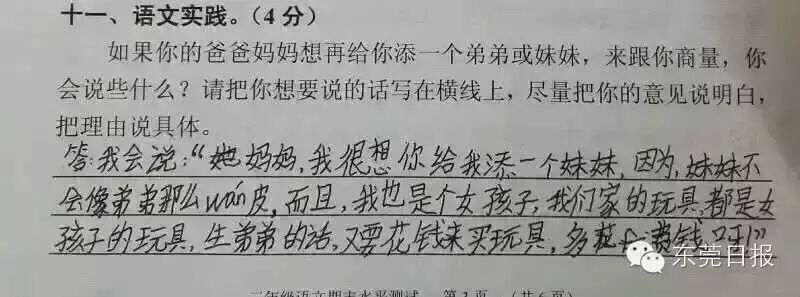 十一、语文实践。（4分）
如果你的爸爸妈妈想再给你添一个弟弟或妹妹，来跟你商量，你
会说些什么？请把你想要说的话写在横线上，尽量把你的意见说明白，
把理由说具体。
答：我会说：“妈妈，我很想你给我添一个妹妹，因为，妹妹不
会像弟弟那么wán皮，而且，我也是个女孩子，我们家的玩具，都是女
孩子的玩具，生弟弟的话，又要花钱来买玩具，多
东莞日报
二年级语文期末水平测试 第3页 （共6页）